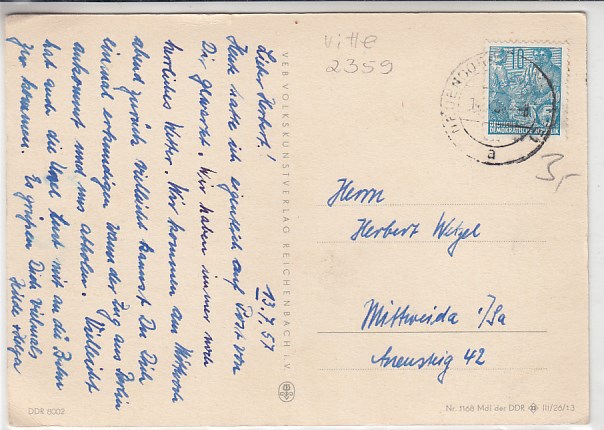 13.7.57
Lieber Herbert!
Heute hatte ich eigentlich auf Post von
Dir gewartet. Wir haben immer noch
herrliches Wetter. Wir kommen am Mittwoch
abend zurück. Vielleicht kannst Du Dich
einmal erkundigen wann der Zug aus Berlin
ankommt und uns abholen. Vielleicht
hat auch die Lust mit an die Bahn
zu kommen. Es grüßen Dich vielmals
Hilde
VEB VOLKSKUNSTVERLAG REICHENBACH i. V.
Vitte
2359
10
DEUTSCHE
DEMOKRATISCHE REPUBLIK
a
3,-
Herrn
Herbert Wetzel
Mittweida i/Sa
42
DDR 8002
Nr. 1168 MdI der DDR III/28/13